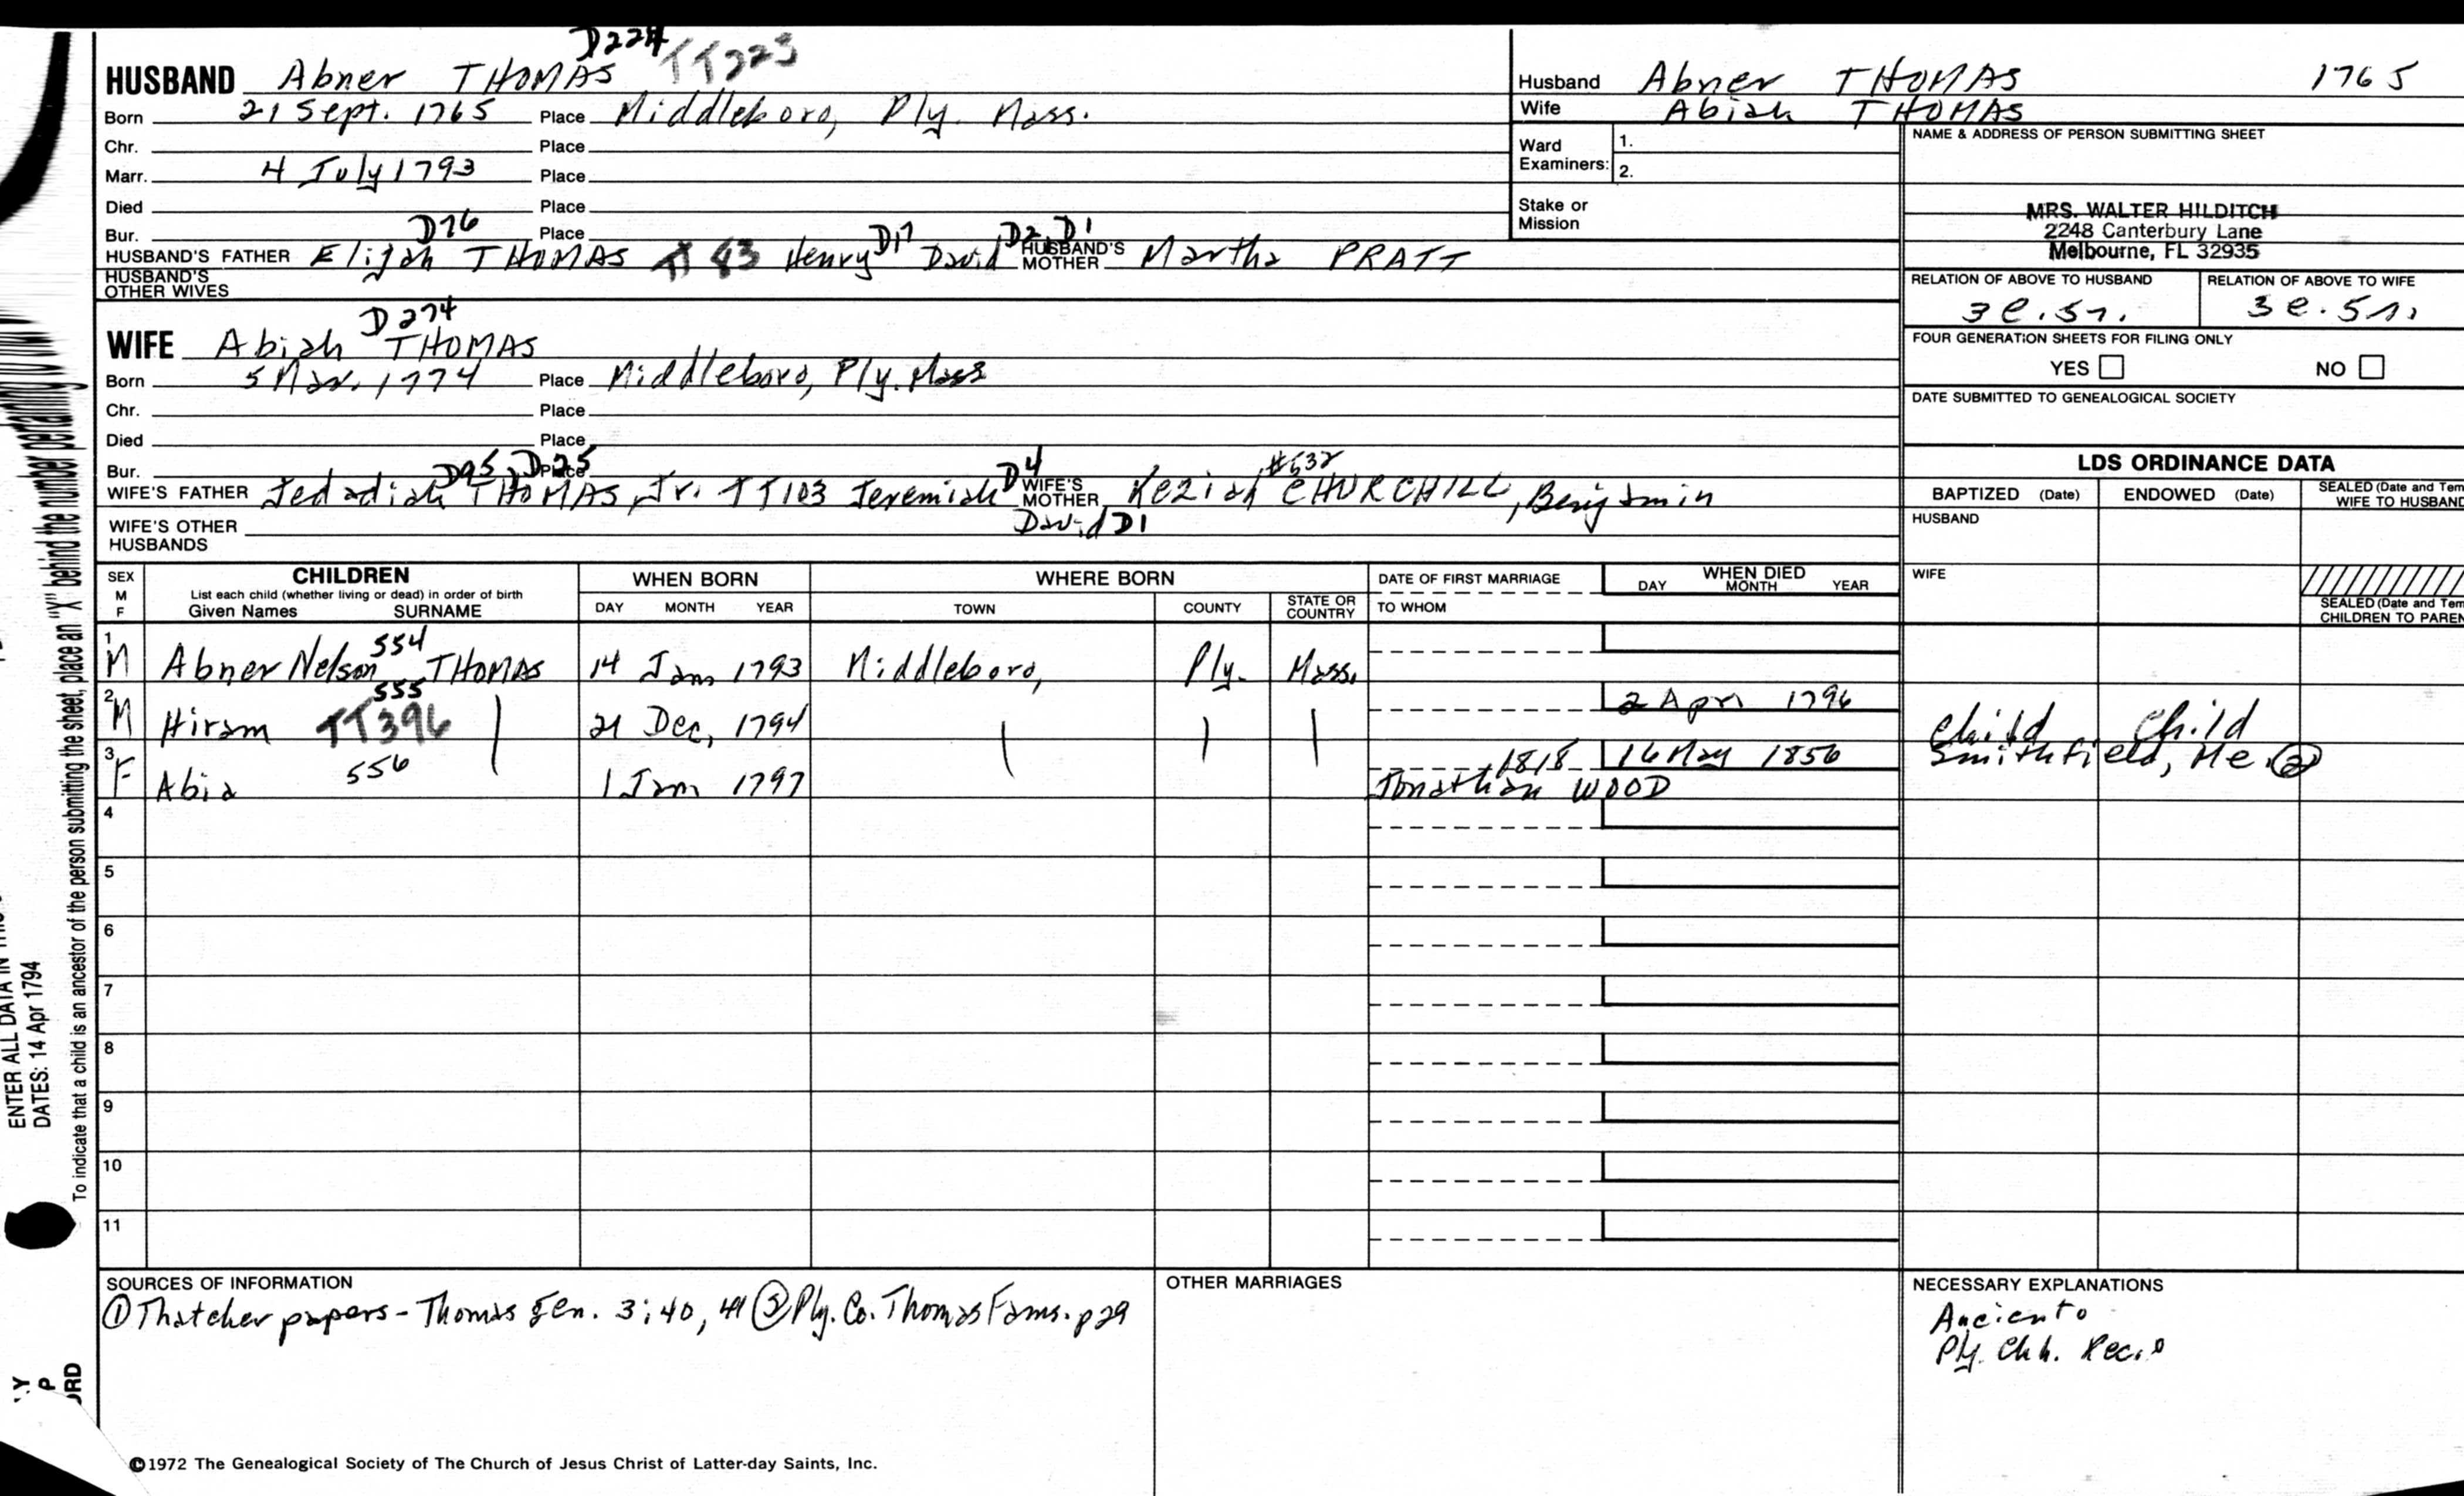 D224 TT223
HUSBAND Abner THOMAS
Born 21 Sept. 1765 Place Middleboro, Ply. Mass.
Chr. Place
Marr. 4 July 1793 Place
Died Place
Bur. Place
D76 D17 D2, D1
HUSBAND'S FATHER Elijah THOMAS TT 83 Henry David HUSBAND'S MOTHER Martha PRATT
HUSBAND'S OTHER WIVES
D274
WIFE Abiah THOMAS
Born 5 Mar. 1774 Place Middleboro, Ply. Mass
Chr. Place
Died Place
Bur. Place
D95, D25 D4 #632
WIFE'S FATHER Jedadiah THOMAS, Jr. TT103 Jeremiah WIFE'S MOTHER Keziah CHURCHILL, Benjamin
David D1
WIFE'S OTHER HUSBANDS
Husband Abner THOMAS 1765
Wife Abiah THOMAS
Ward Examiners: 1.
2.
Stake or Mission
NAME & ADDRESS OF PERSON SUBMITTING SHEET
MRS. WALTER HILDITCH
2248 Canterbury Lane
Melbourne, FL 32935
RELATION OF ABOVE TO HUSBAND RELATION OF ABOVE TO WIFE
3c.5r. 3c.5r.
FOUR GENERATION SHEETS FOR FILING ONLY
YES NO
DATE SUBMITTED TO GENEALOGICAL SOCIETY
LDS ORDINANCE DATA
BAPTIZED (Date) ENDOWED (Date) SEALED (Date and Tem
WIFE TO HUSBAND
HUSBAND
WIFE
SEALED (Date and Tem
CHILDREN TO PAREN
SEX M F
CHILDREN
List each child (whether living or dead) in order of birth
Given Names SURNAME
WHEN BORN
DAY MONTH YEAR
WHERE BORN
TOWN COUNTY STATE OR COUNTRY
DATE OF FIRST MARRIAGE
TO WHOM
WHEN DIED
DAY MONTH YEAR
554
1 M Abner Nelson THOMAS 14 Jan 1793 Middleboro, Ply. Mass.
555 2 Apr 1796
2 M Hiram TT396 21 Dec, 1794 Child Child
556 1818 16 May 1856 Smithfield, Me. ②
3 F Abia 1 Jan 1797 Jonathan WOOD
4
5
6
7
8
9
10
11
SOURCES OF INFORMATION
① Thatcher papers - Thomas gen. 3:40, 41 ② Ply. Co. Thomas Fams. p29
OTHER MARRIAGES
NECESSARY EXPLANATIONS
Ply. Chh. Rec.
©1972 The Genealogical Society of The Church of Jesus Christ of Latter-day Saints, Inc.
To indicate that a child is an ancestor of the person submitting the sheet, place an "X" behind the number pertaining to
ENTER ALL DATA IN
DATES: 14 Apr 1794